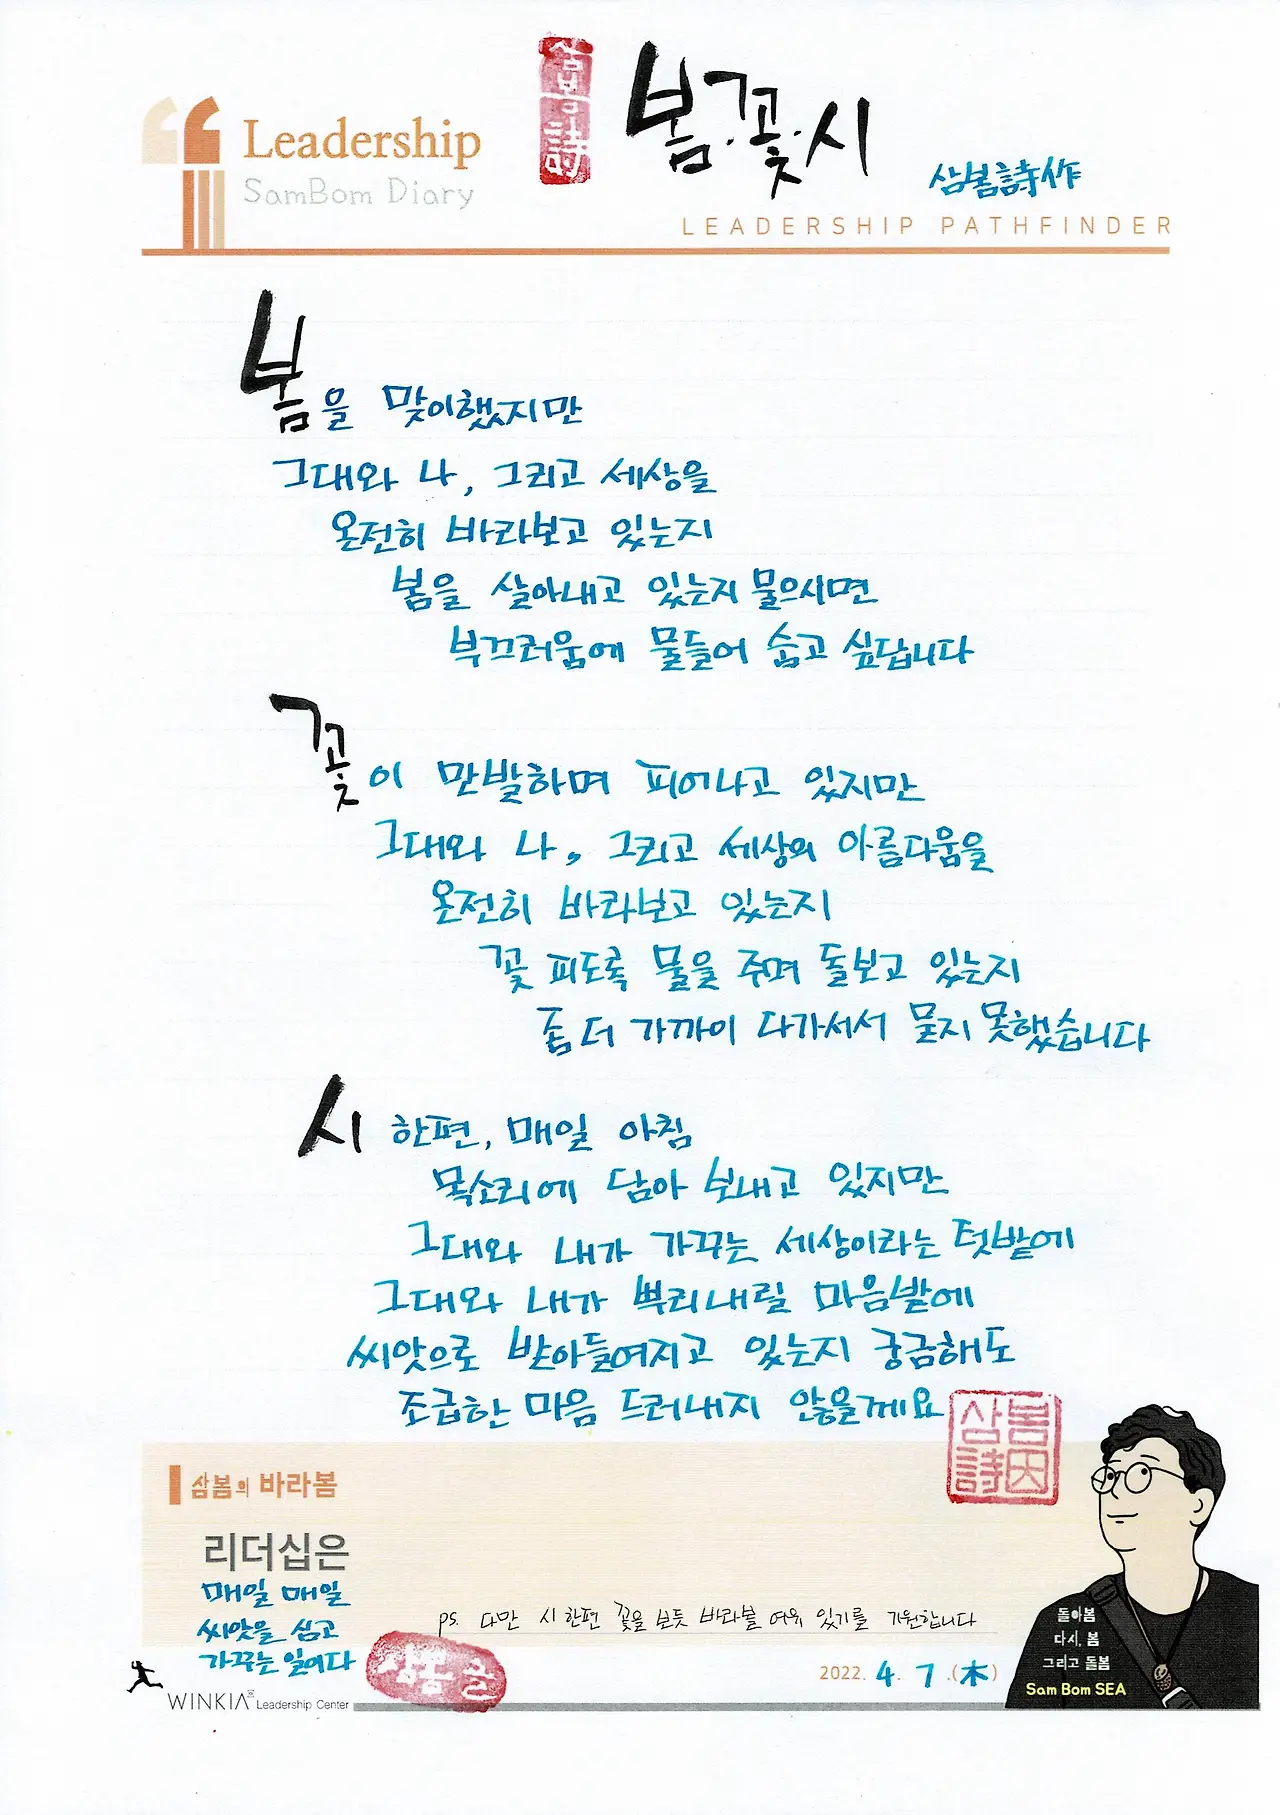 삼봄詩
봄.꽃.시
Leadership
SamBom Diary
삼봄詩作
LEADERSHIP PATHFINDER
봄을 맞이했지만
그대와 나, 그리고 세상을
온전히 바라보고 있는지
봄을 살아내고 있는지 물으시면
부끄러움에 물들어 숨고 싶답니다
꽃이 만발하며 피어나고 있지만
그대와 나, 그리고 세상의 아름다움을
온전히 바라보고 있는지
꽃 피도록 물을 주며 돌보고 있는지
좀 더 가까이 다가서서 묻지 못했습니다
시 한편, 매일 아침
목소리에 담아 보내고 있지만
그대와 내가 가꾸는 세상이라는 텃밭에
그대와 내가 뿌리내릴 마음밭에
씨앗으로 받아들여지고 있는지 궁금해도
조급한 마음 드러내지 않을께요
삼봄
詩因
삼봄의 바라봄
리더십은
매일 매일
씨앗을 심고
가꾸는 일이다
ps. 다만 시 한편 꽃을 보듯 바라볼 여유 있기를 기원합니다
돌아봄
다시, 봄
그리고 돌봄
Sam Bom SEA
삼봄 글
2022. 4. 7 .(木)
WINKIA Leadership Center